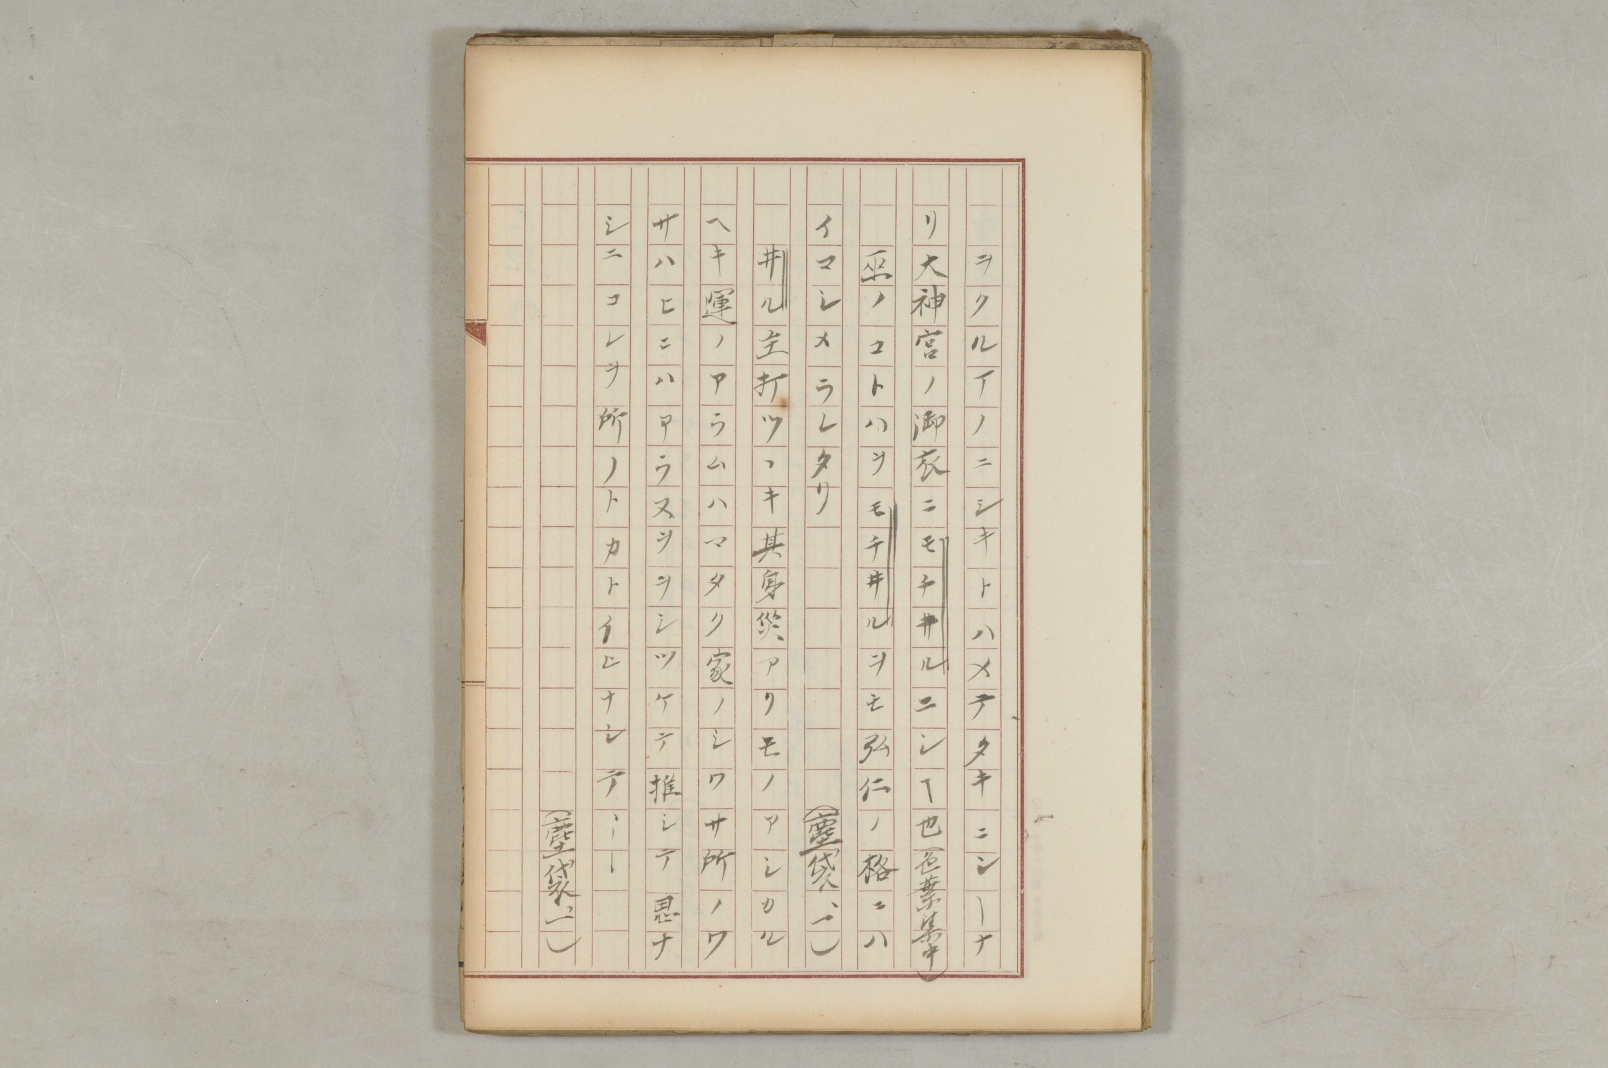 ヲクルイノニシキトハメテタキニシーナ
リ大神宮ノ御衣ニモチ井ルニシー也(色葉集中)
巫ノコトハヲモチ井ルヲモ弘仁ノ格ニハ
イマシメラレタリ (塵袋、一)
井ル主打ツヽキ其身災アリモノアシカル
ヘキ運ノアラムハマタク家ノシワサ所ノワ
サハヒニハアラヌヲヲシツケテ推シテ思ナ
シニコレヲ所ノトカトイヒナシテ、、ー
(塵袋、一)